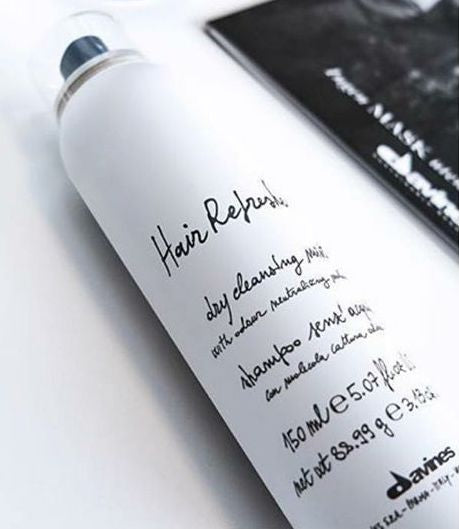 Hair Refresh
dry cleansing
with odour neutralizing
shampoo senz'acqua
con molecola cattura
150 ml e 5.07 fl.oz
net wt 88.99 g e 3.13
davines
MASK
davines